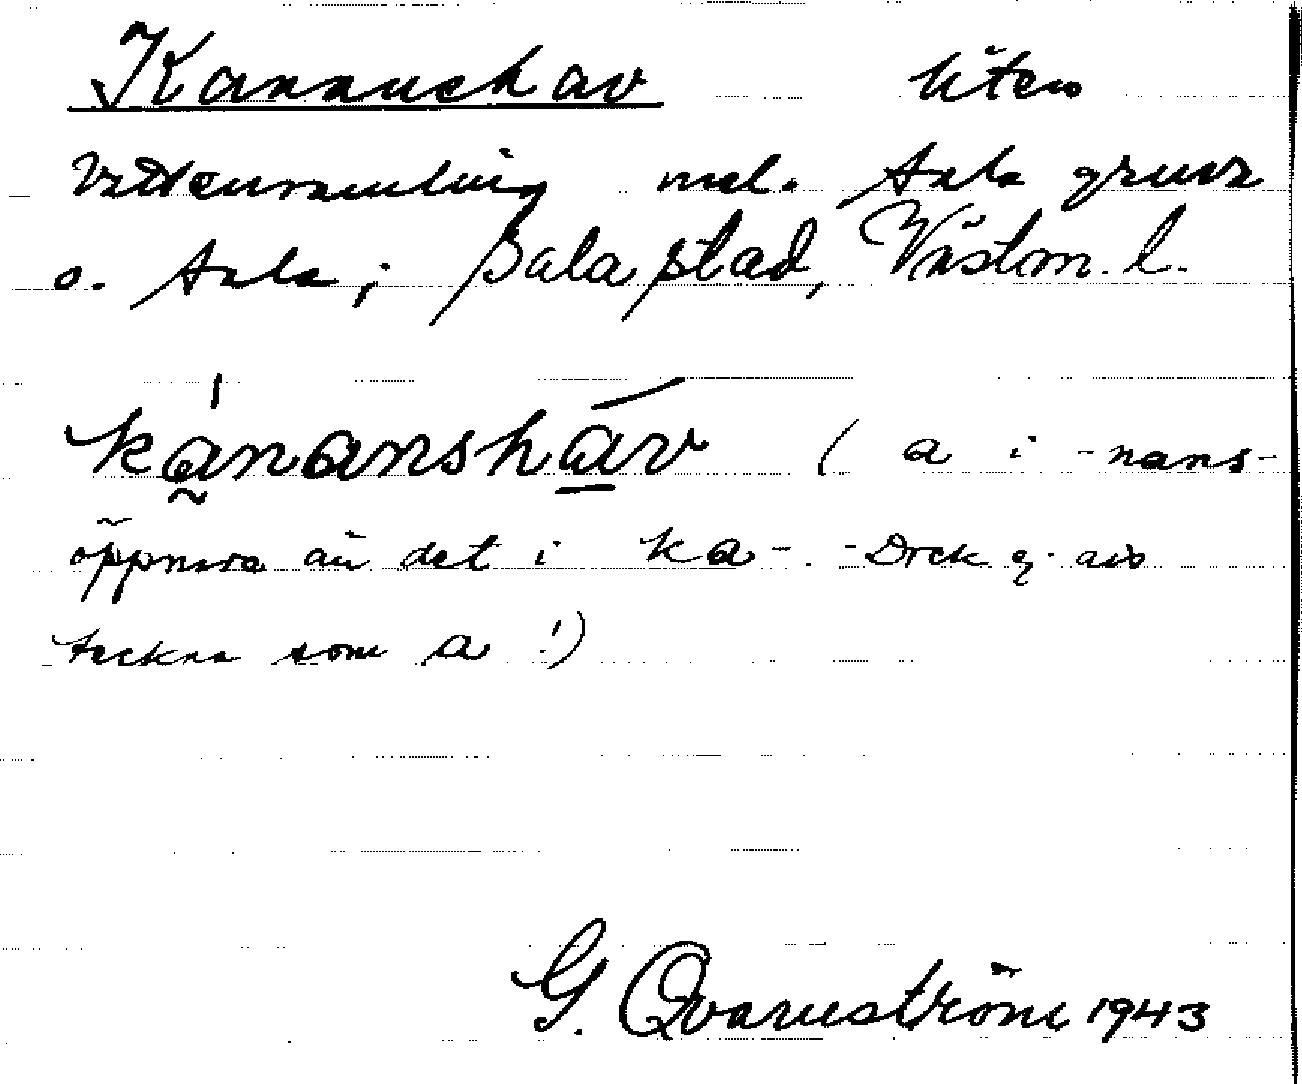 Kananshav liten
Vattensamling mel. Sala gruva
o. Sala; Sala stad, Västm. l.
kánanshav (a i -nans-
öppnare än det i ka-. -Dock ej av
teckna som a!)
G. Qvarnström 1943